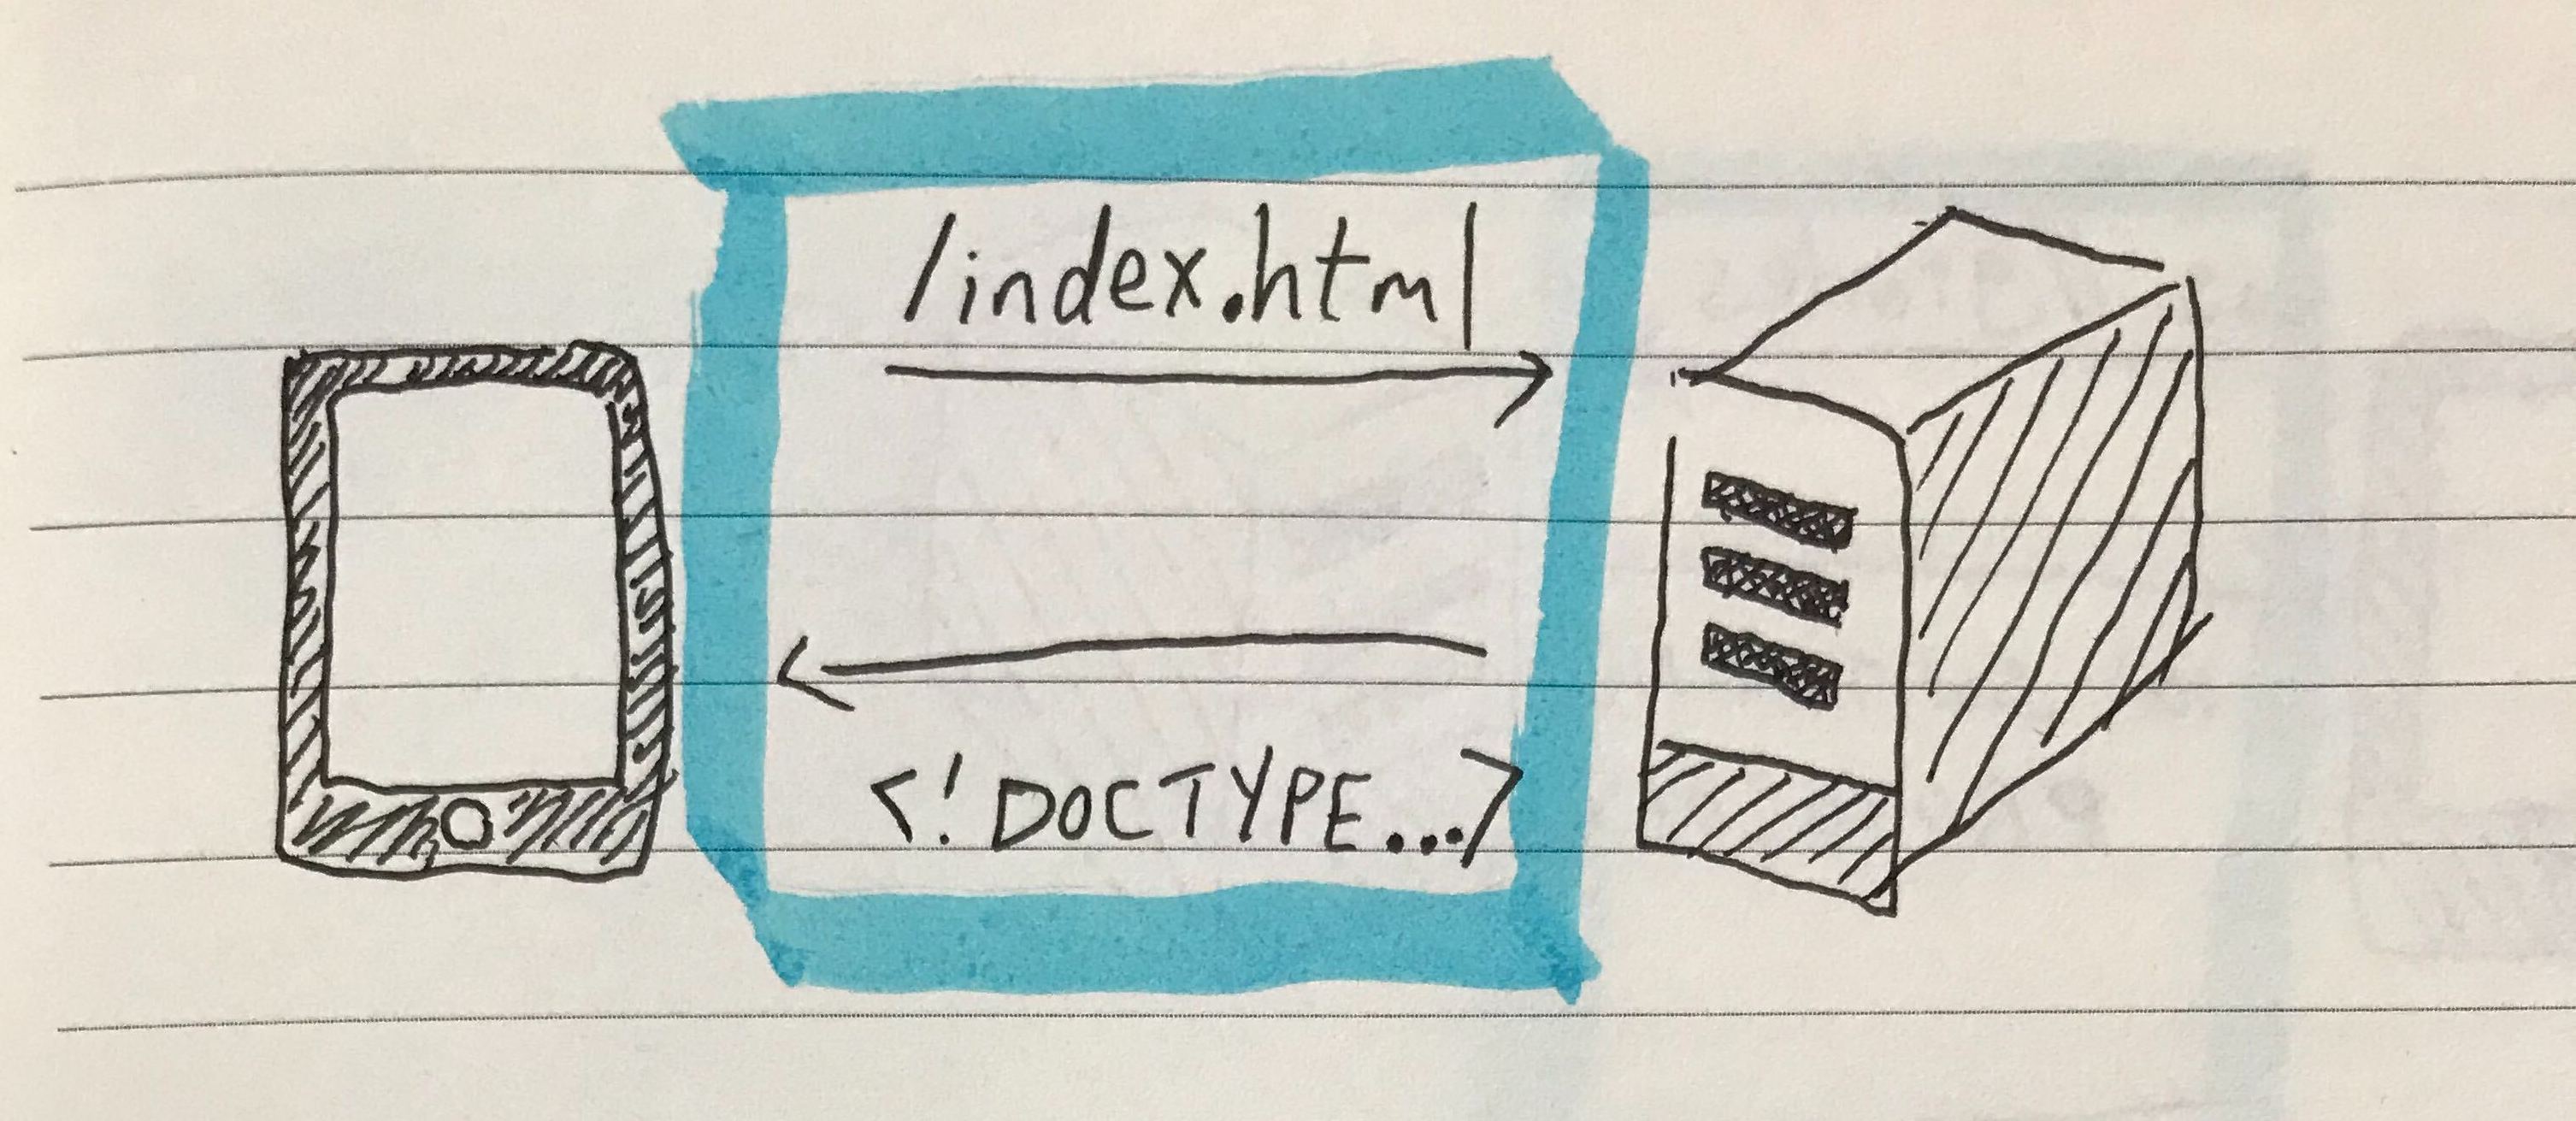 /index.html
<!DOCTYPE...>